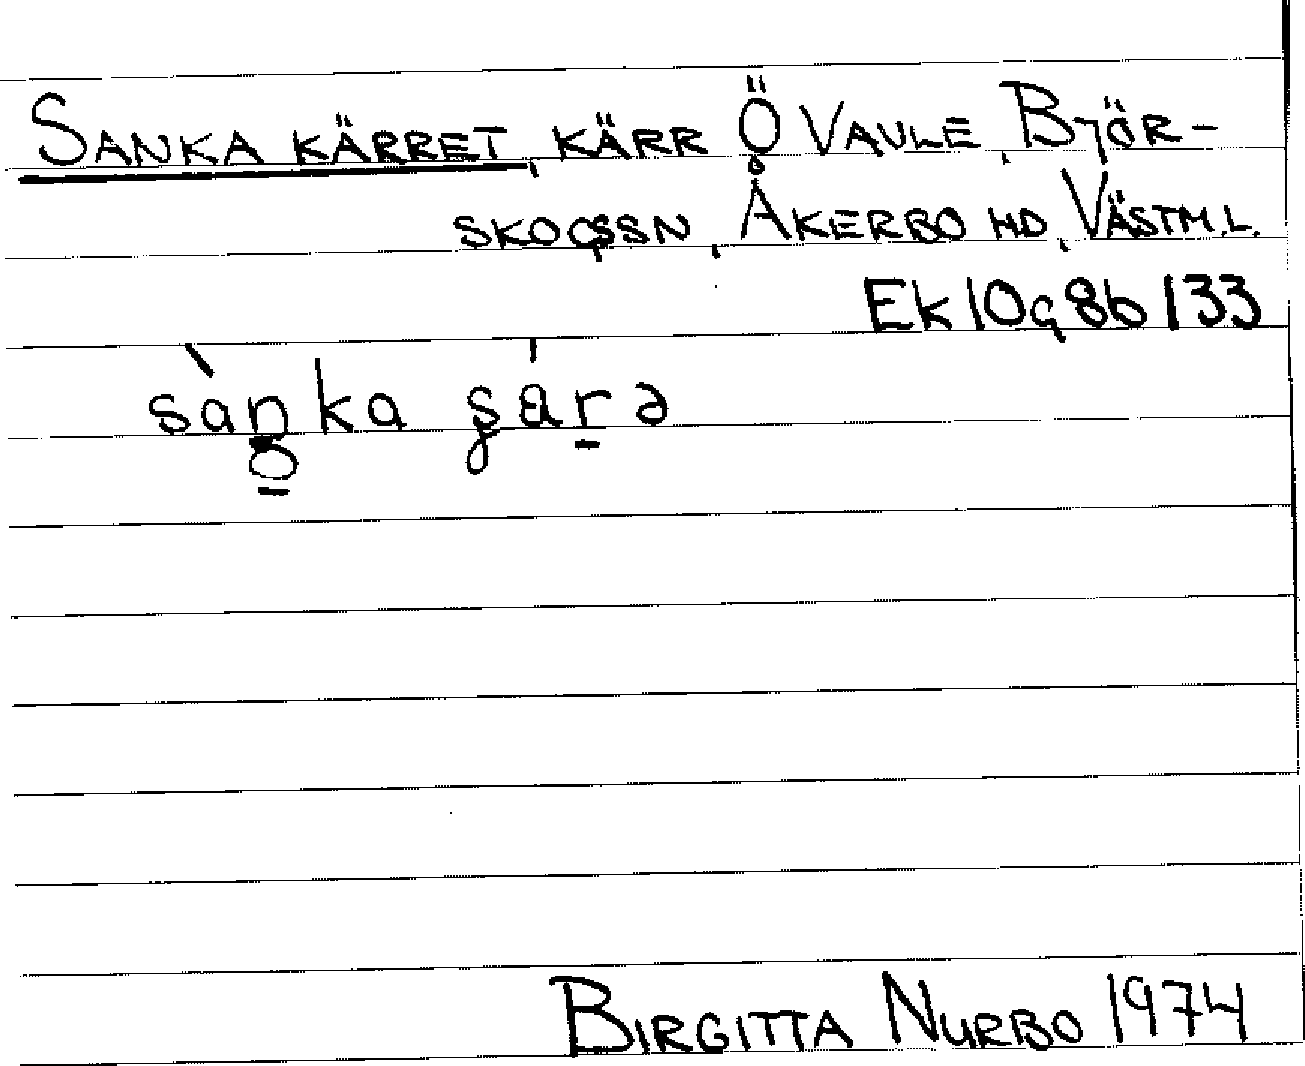 SANKA KÄRRET, KÄRR Ö VAULE, BJÖR-
SKOGSSN, ÅKERBO HD, VÄSTM.L.
Ek 10g 8b 133
BIRGITTA NURBO 1974